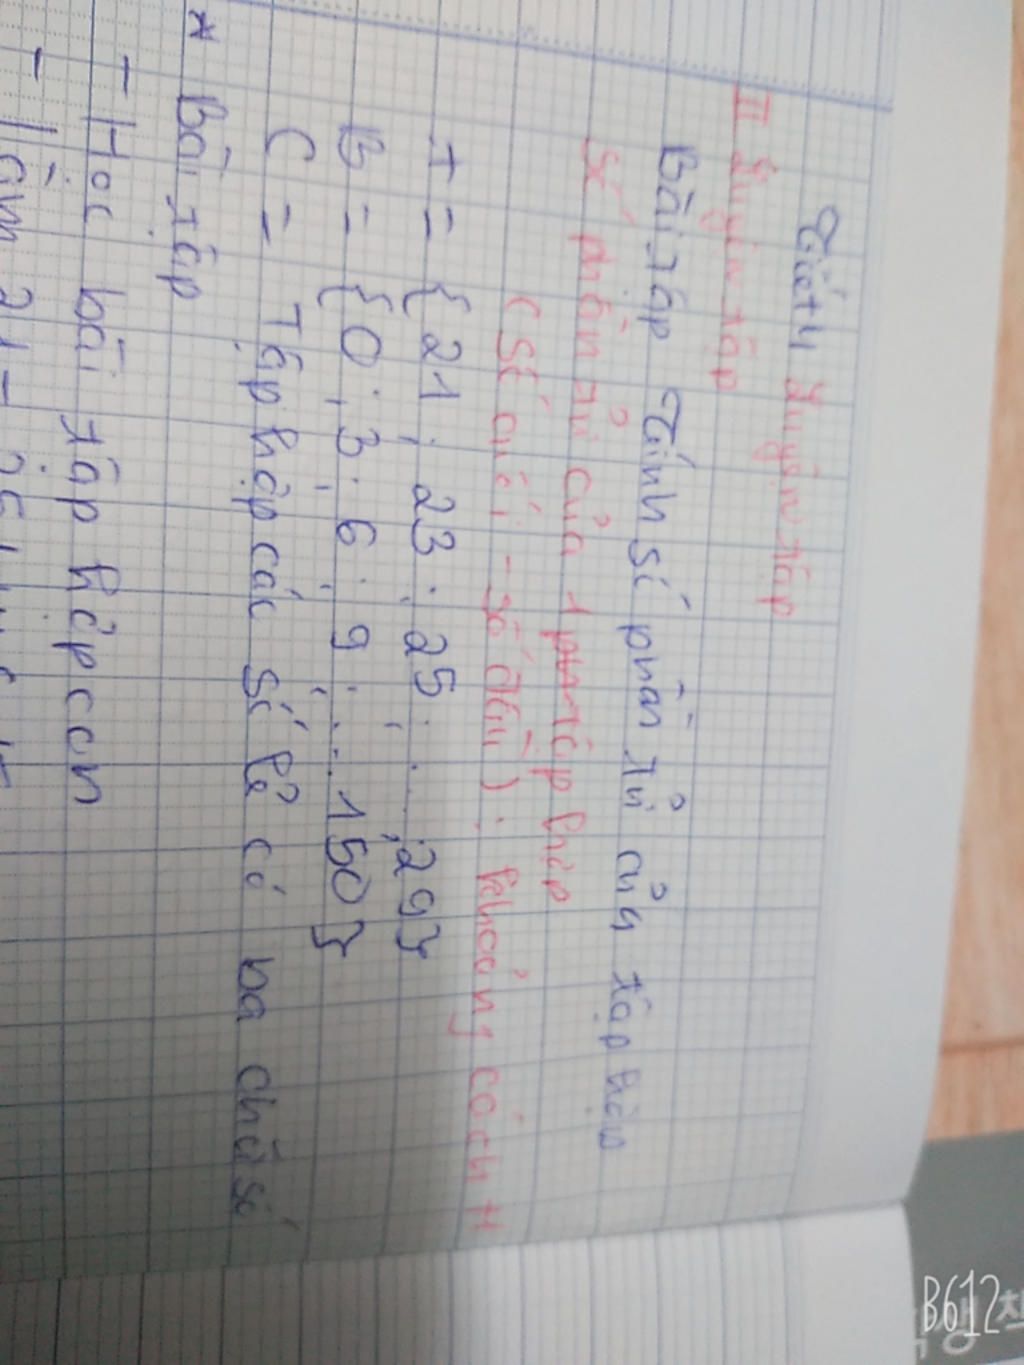 Tiết 4 Luyện tập
II Luyện tập
Bài tập Tính số phần tử của tập hợp
Số phần tử của 1 tập hợp
(Số cuối - số đầu): khoảng cách +1
A = {21; 23; 25; ... ; 29}
B = {0; 3; 6; 9; ... 150}
C = Tập hợp các số lẻ có ba chữ số
* Bài tập
- Học bài tập hợp con
- Làm 21 - 25
B612
생책